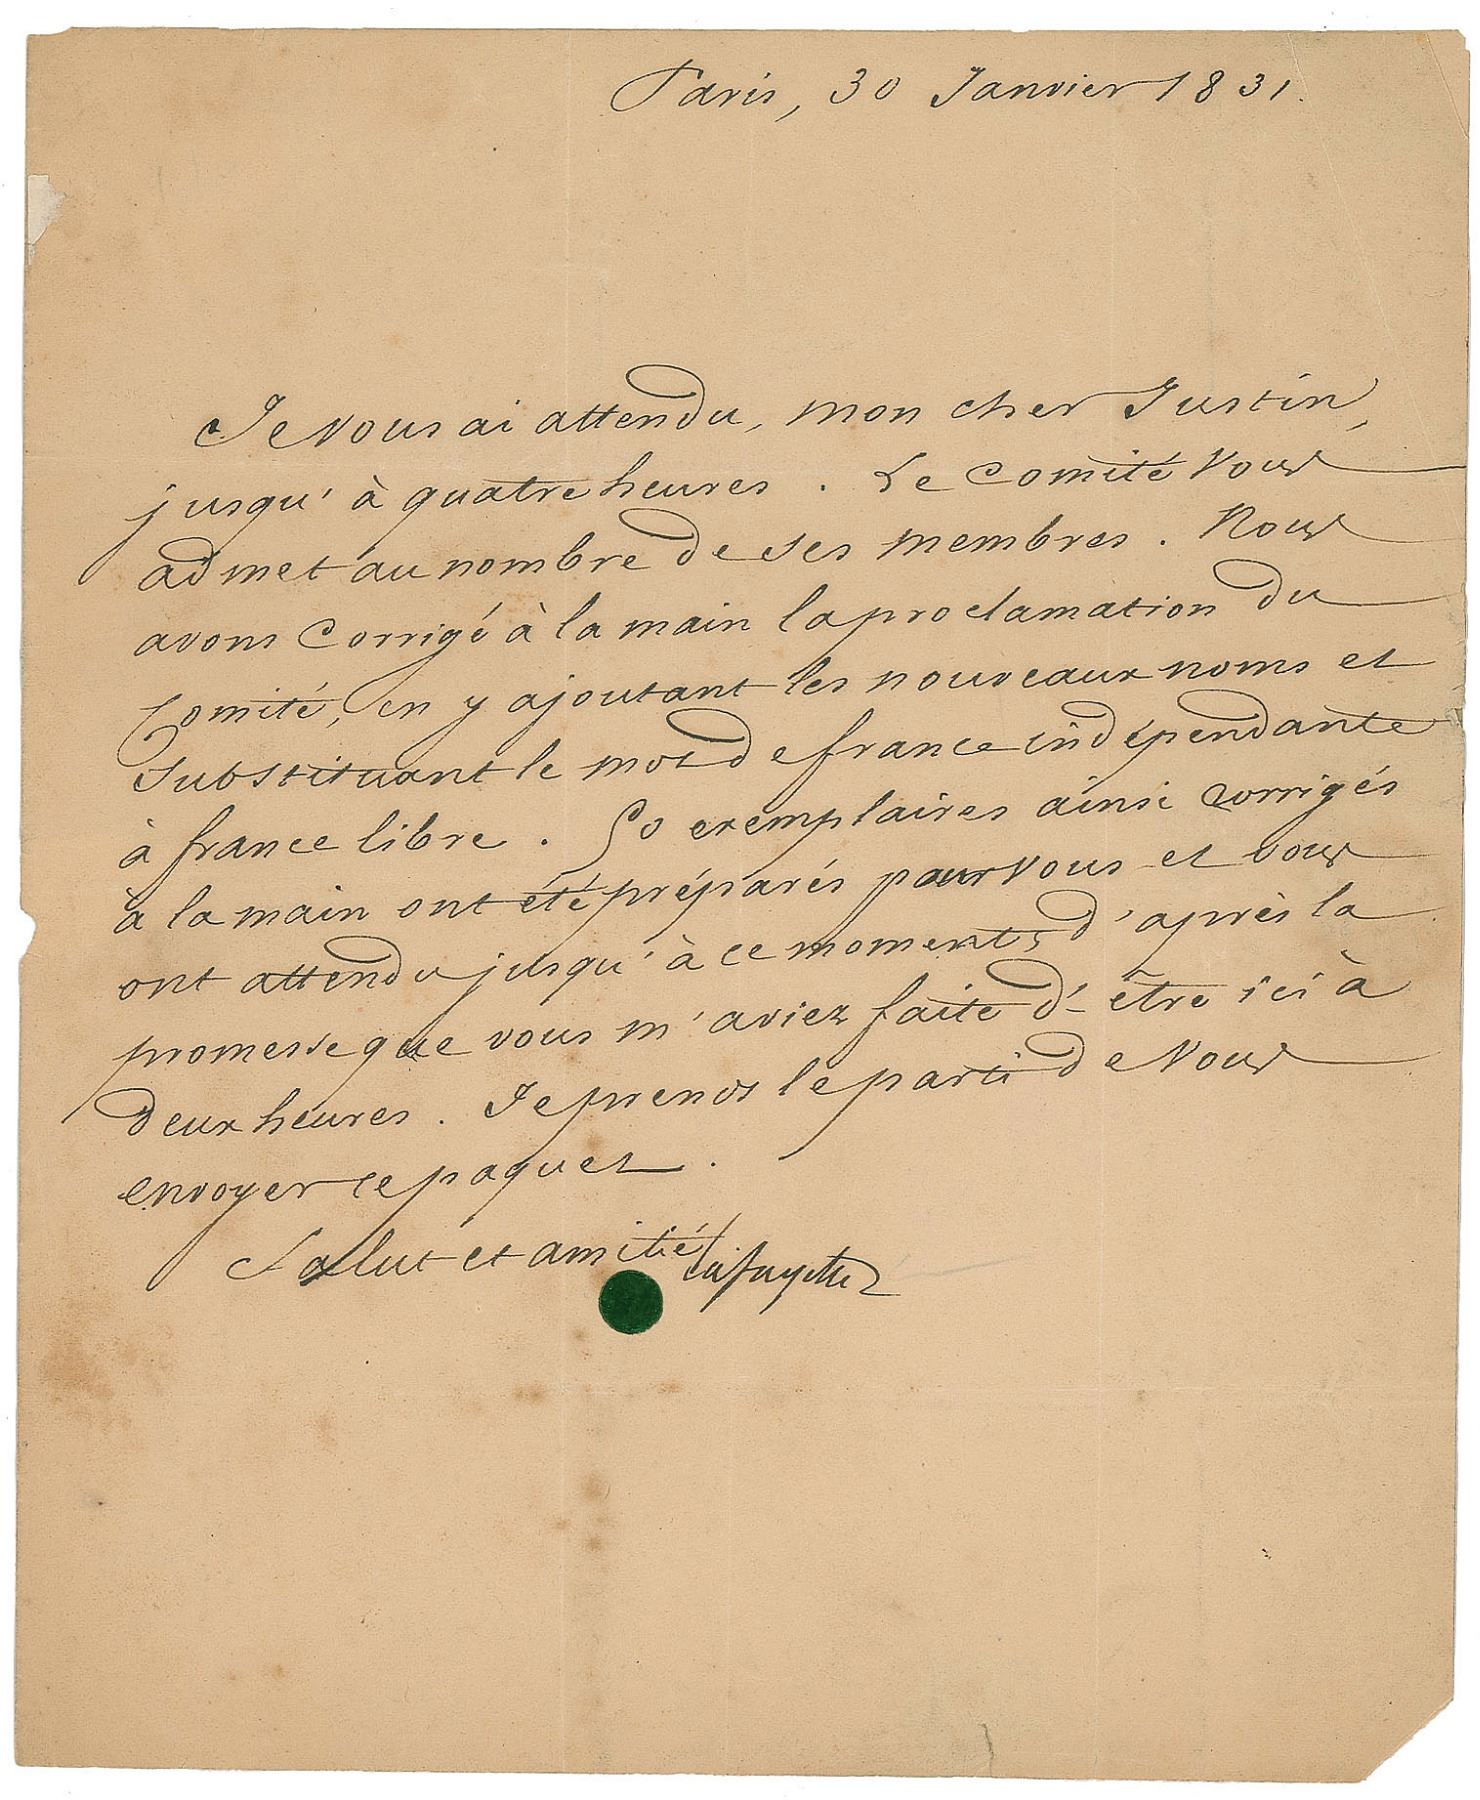 Paris, 30 Janvier 1831.
Je vous ai attendu, mon cher Justin,
jusqu'à quatre heures. Le Comité vous
admet au nombre de ses membres. Nous
avons corrigé à la main la proclamation du
Comité, en y ajoutant les nouveaux noms et
substituant le mot de france indépendante
à france libre. 50 exemplaires ainsi corrigés
à la main ont été préparés pour vous et vous
ont attendu jusqu'à ce moment, d'après la
promesse que vous m'aviez faite d'être ici à
deux heures. Je prends le parti de vous
envoyer ce paquet.
Salut et amitié
Lafayette